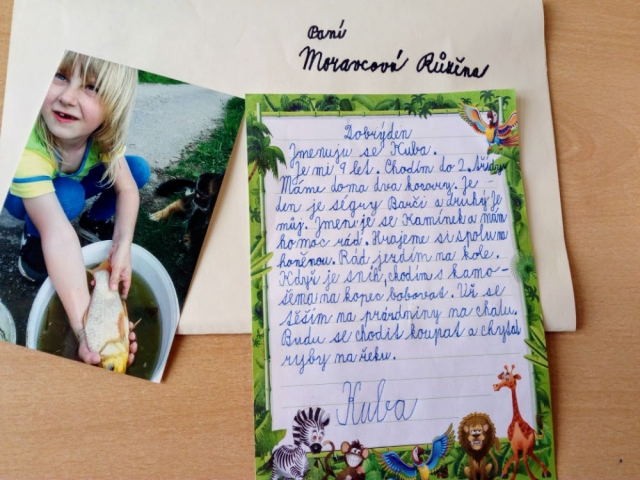 Paní
Moravcová Růžena
Dobrýden
Jmenuju se Kuba.
Je mi 9 let. Chodím do 2. třídy
Máme doma dva kocoury. Je-
den je ségry Barči a druhý je
můj. Jmenuje se Kamínek a mám
ho moc rád. Hrajeme si spolu na
honěnou. Rád jezdím na kole.
Když je sníh, chodím s kamo-
šema na kopec bobovat. Už se
těším na prázdniny na chalu.
Budu se chodit koupat a chytat
ryby na řeku.
Kuba